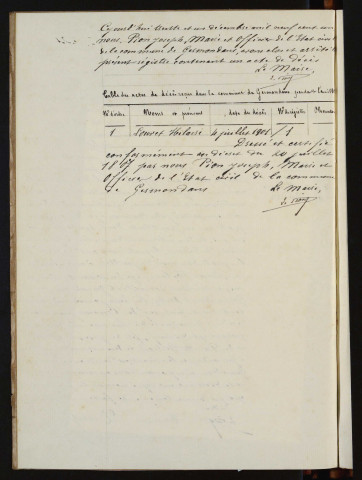 Ce jourd'hui trente et un décembre mil neuf cent un
nous, Pion Joseph, Maire et Officier de l'Etat civil
de la commune de Germondans, avons clos et arrêté le
présent registre contenant un acte de décès
Le Maire,
Table des actes de décès reçus dans la commune de Germondans pendant l'année 1901
Nos d'ordre Noms et prénoms date du décès No du registre
1 Hilaire 4 juillet 1901 1
Dressé et certifié
conformément au décret du 20 juillet
1807 par nous Pion Joseph, Maire et
Officier de l'Etat civil de la commune
de Germondans Le Maire,